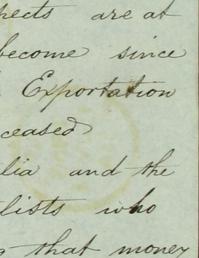 pects are at
become since
Exportation
ceased
lia and the
lists who
that money